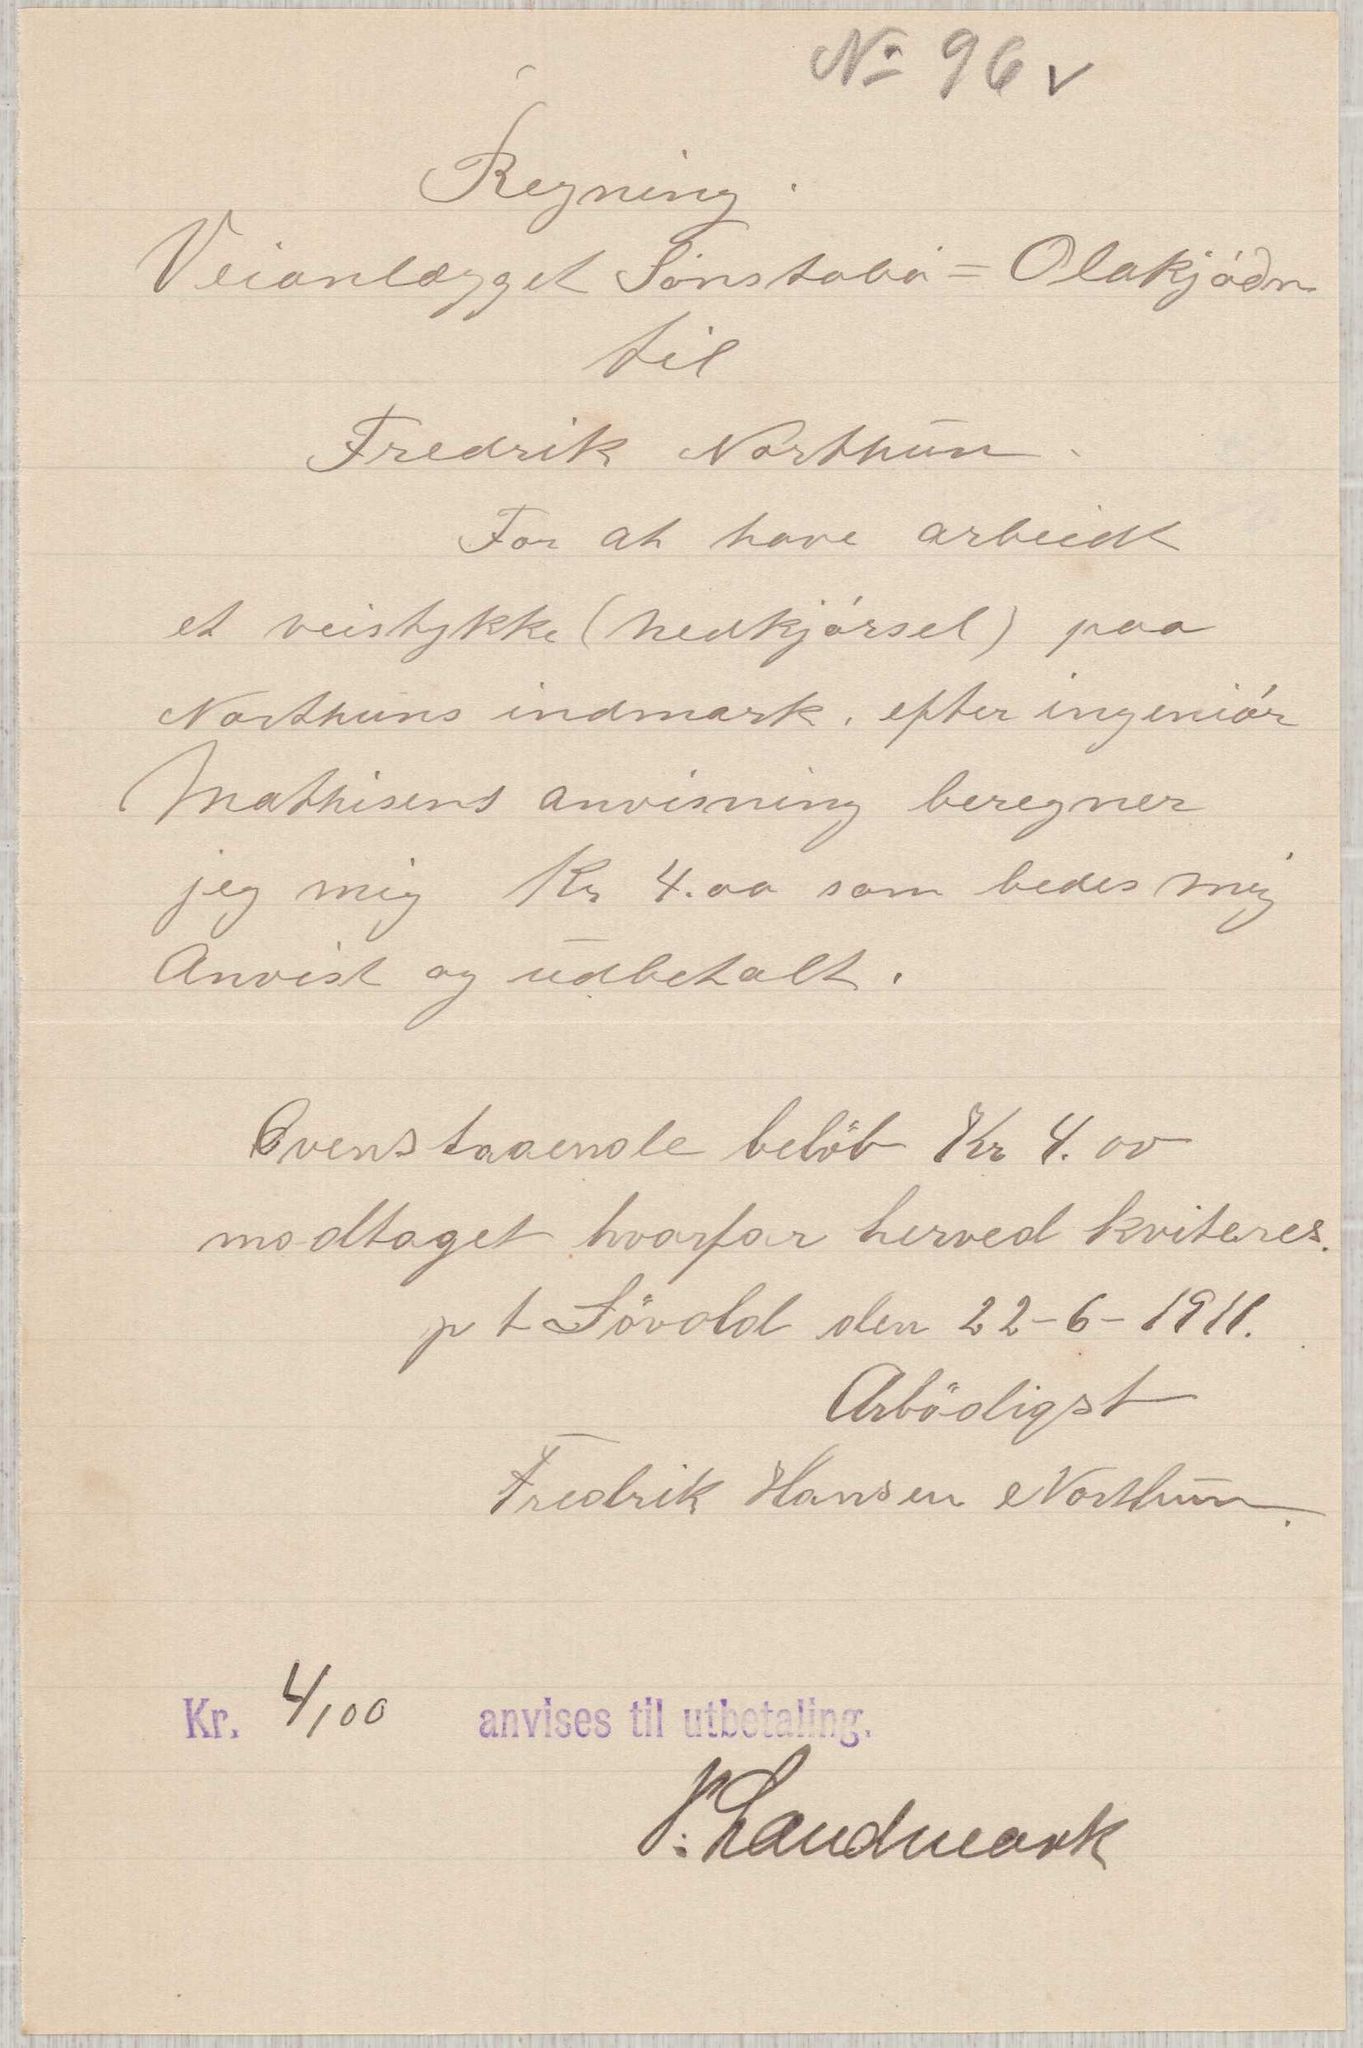 No 96 v
Regning.
Veianlægget Sønstabø = Olakjødn
til
Fredrik Northun.
For at have arbeidt
et veistykke (nedkjørsel) paa
Northuns indmark, efter ingeniør
Mathisens anvisning beregner
jeg mig Kr 4.00 som bedes mig
Anvist og udbetalt.
Ovenstaaende beløb Kr 4.00
modtaget hvorfor herved kviteres.
p t Søvold den 22-6-1911.
Ærbødigst
Fredrik Hansen Northun.
Kr. 4,00 anvises til utbetaling.
Landmark